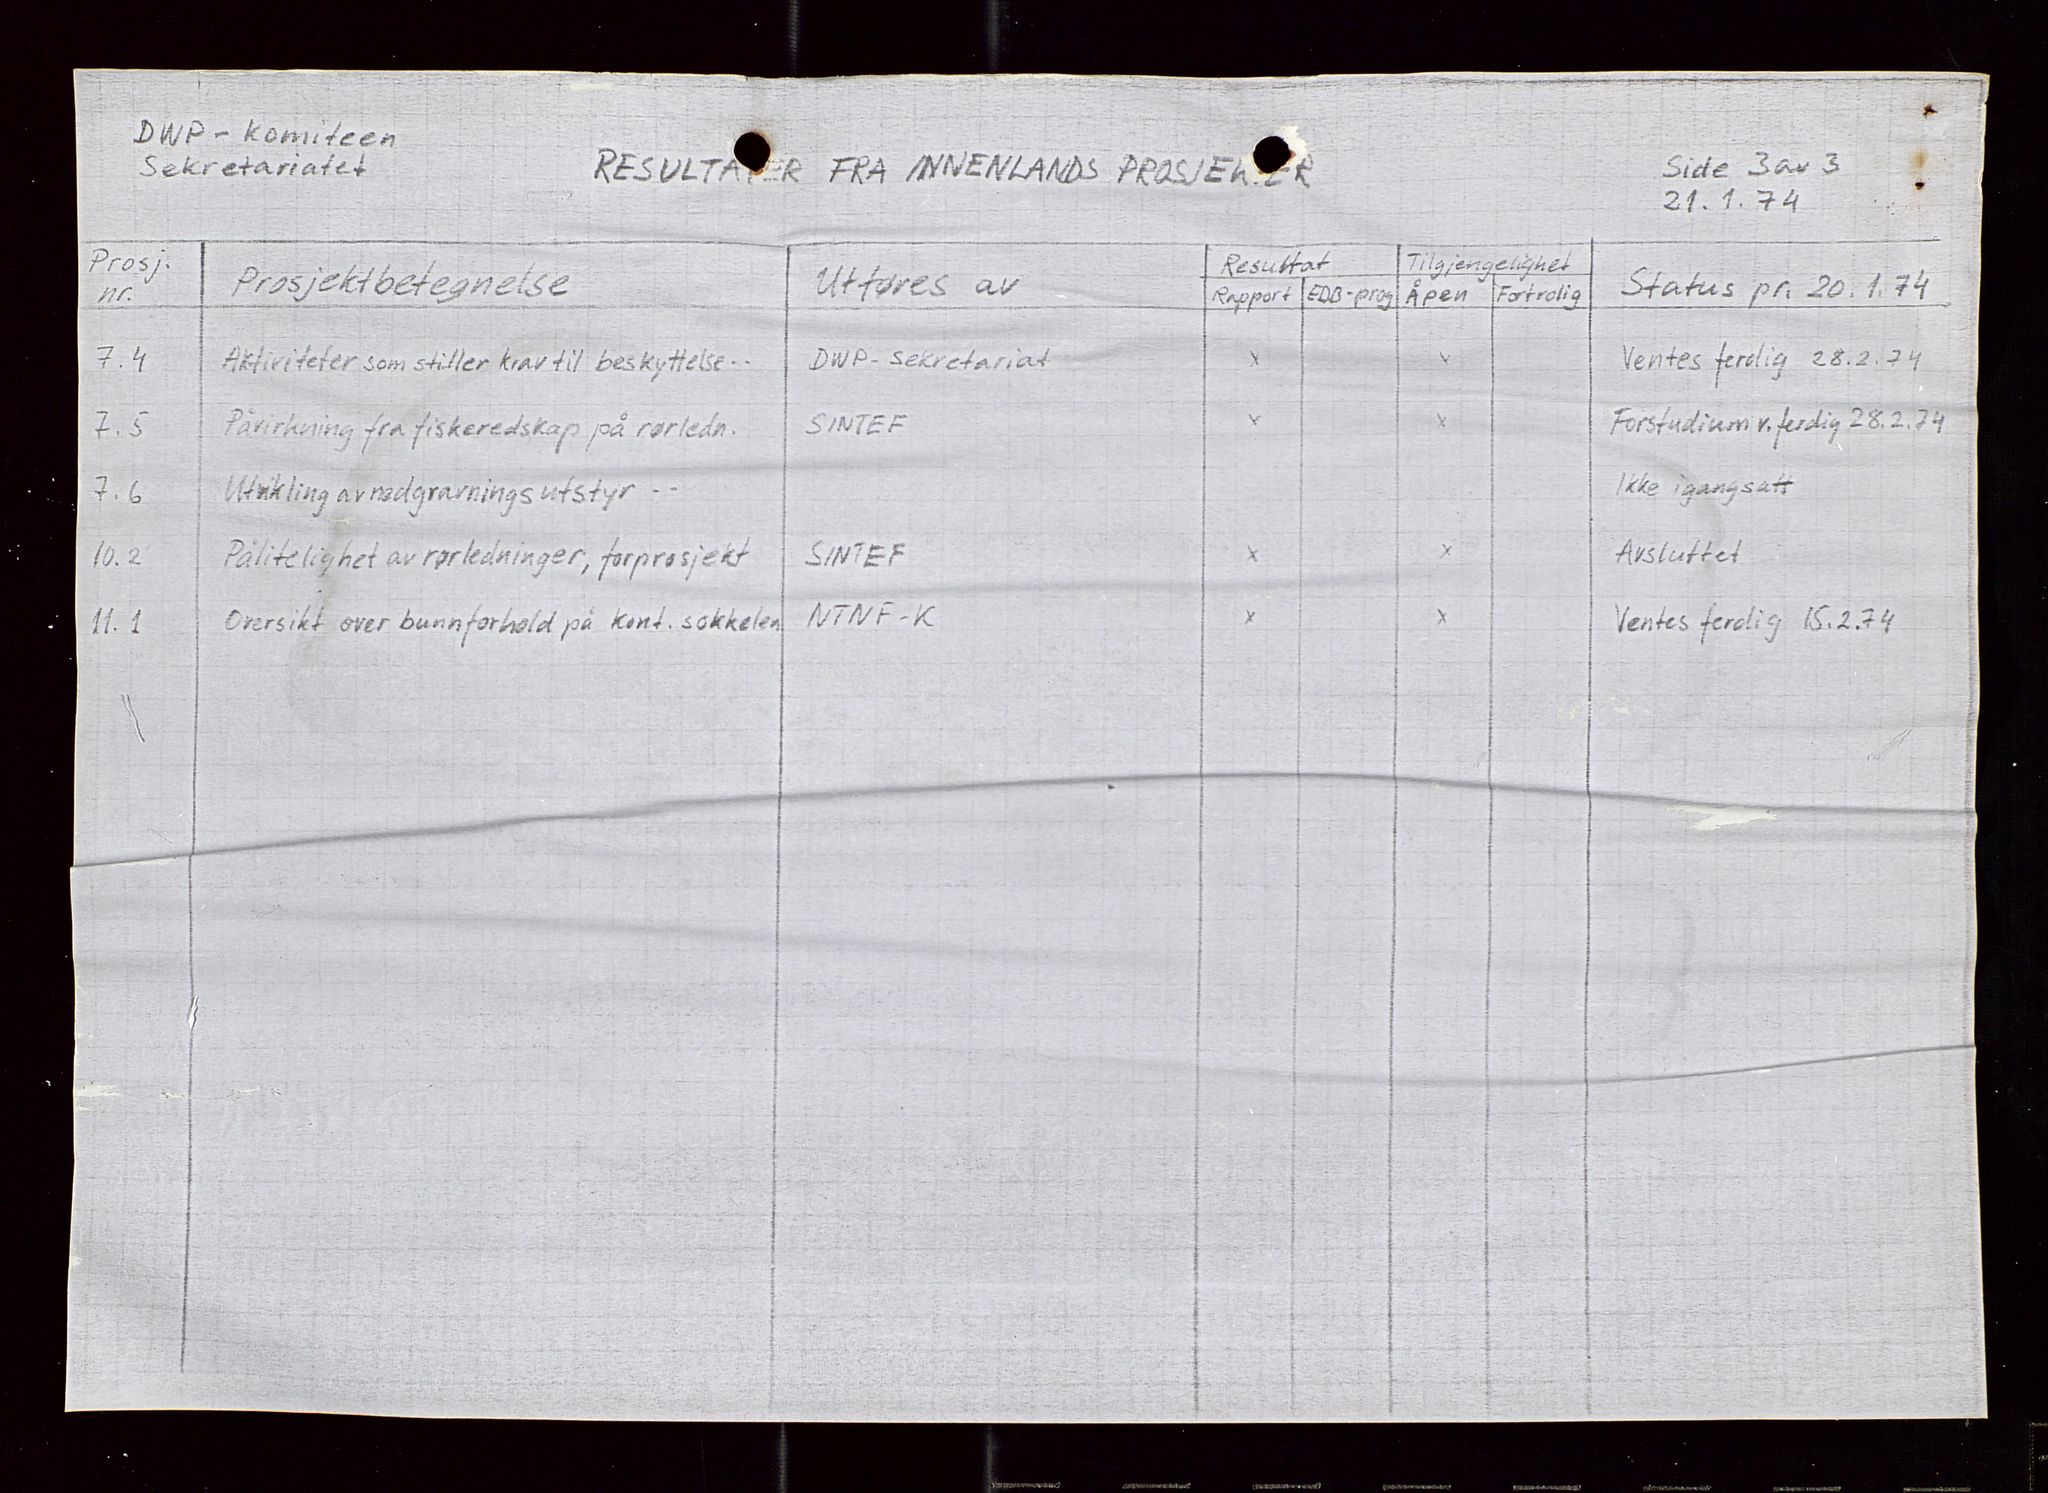 DWP - Komiteen
Sekretariatet
RESULTATER FRA INNENLANDS PROSJEKTER
Side 3 av 3
21.1.74
Prosj. nr. Prosjektbetegnelse Utføres av Resultat Rapport EDB-prog Tilgjengelighet Åpen Fortrolig Status pr. 20.1.74
7.4 Aktiviteter som stiller krav til beskyttelse -- DWP-sekretariat x x Ventes ferdig 28.2.74
7.5 Påvirkning fra fiskeredskap på rørledn. SINTEF x x Forstudium v. ferdig 28.2.74
7.6 Utvikling av nedgravningsutstyr -- Ikke igangsatt
10.2 Pålitelighet av rørledninger, forprosjekt SINTEF x x Avsluttet
11.1 Oversikt over bunnforhold på kont. sokkelen NTNF-K x x Ventes ferdig 15.2.74